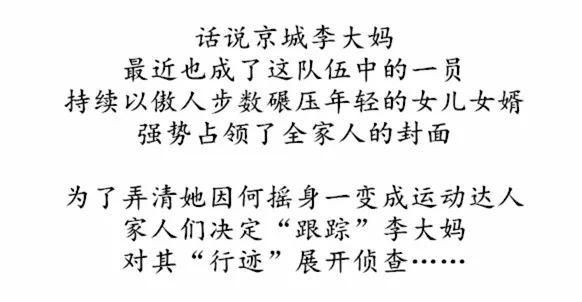 话说京城李大妈
最近也成了这队伍中的一员
持续以傲人步数碾压年轻的女儿女婿
强势占领了全家人的封面
为了弄清她因何摇身一变成运动达人
家人们决定“跟踪”李大妈
对其“行迹”展开侦查……